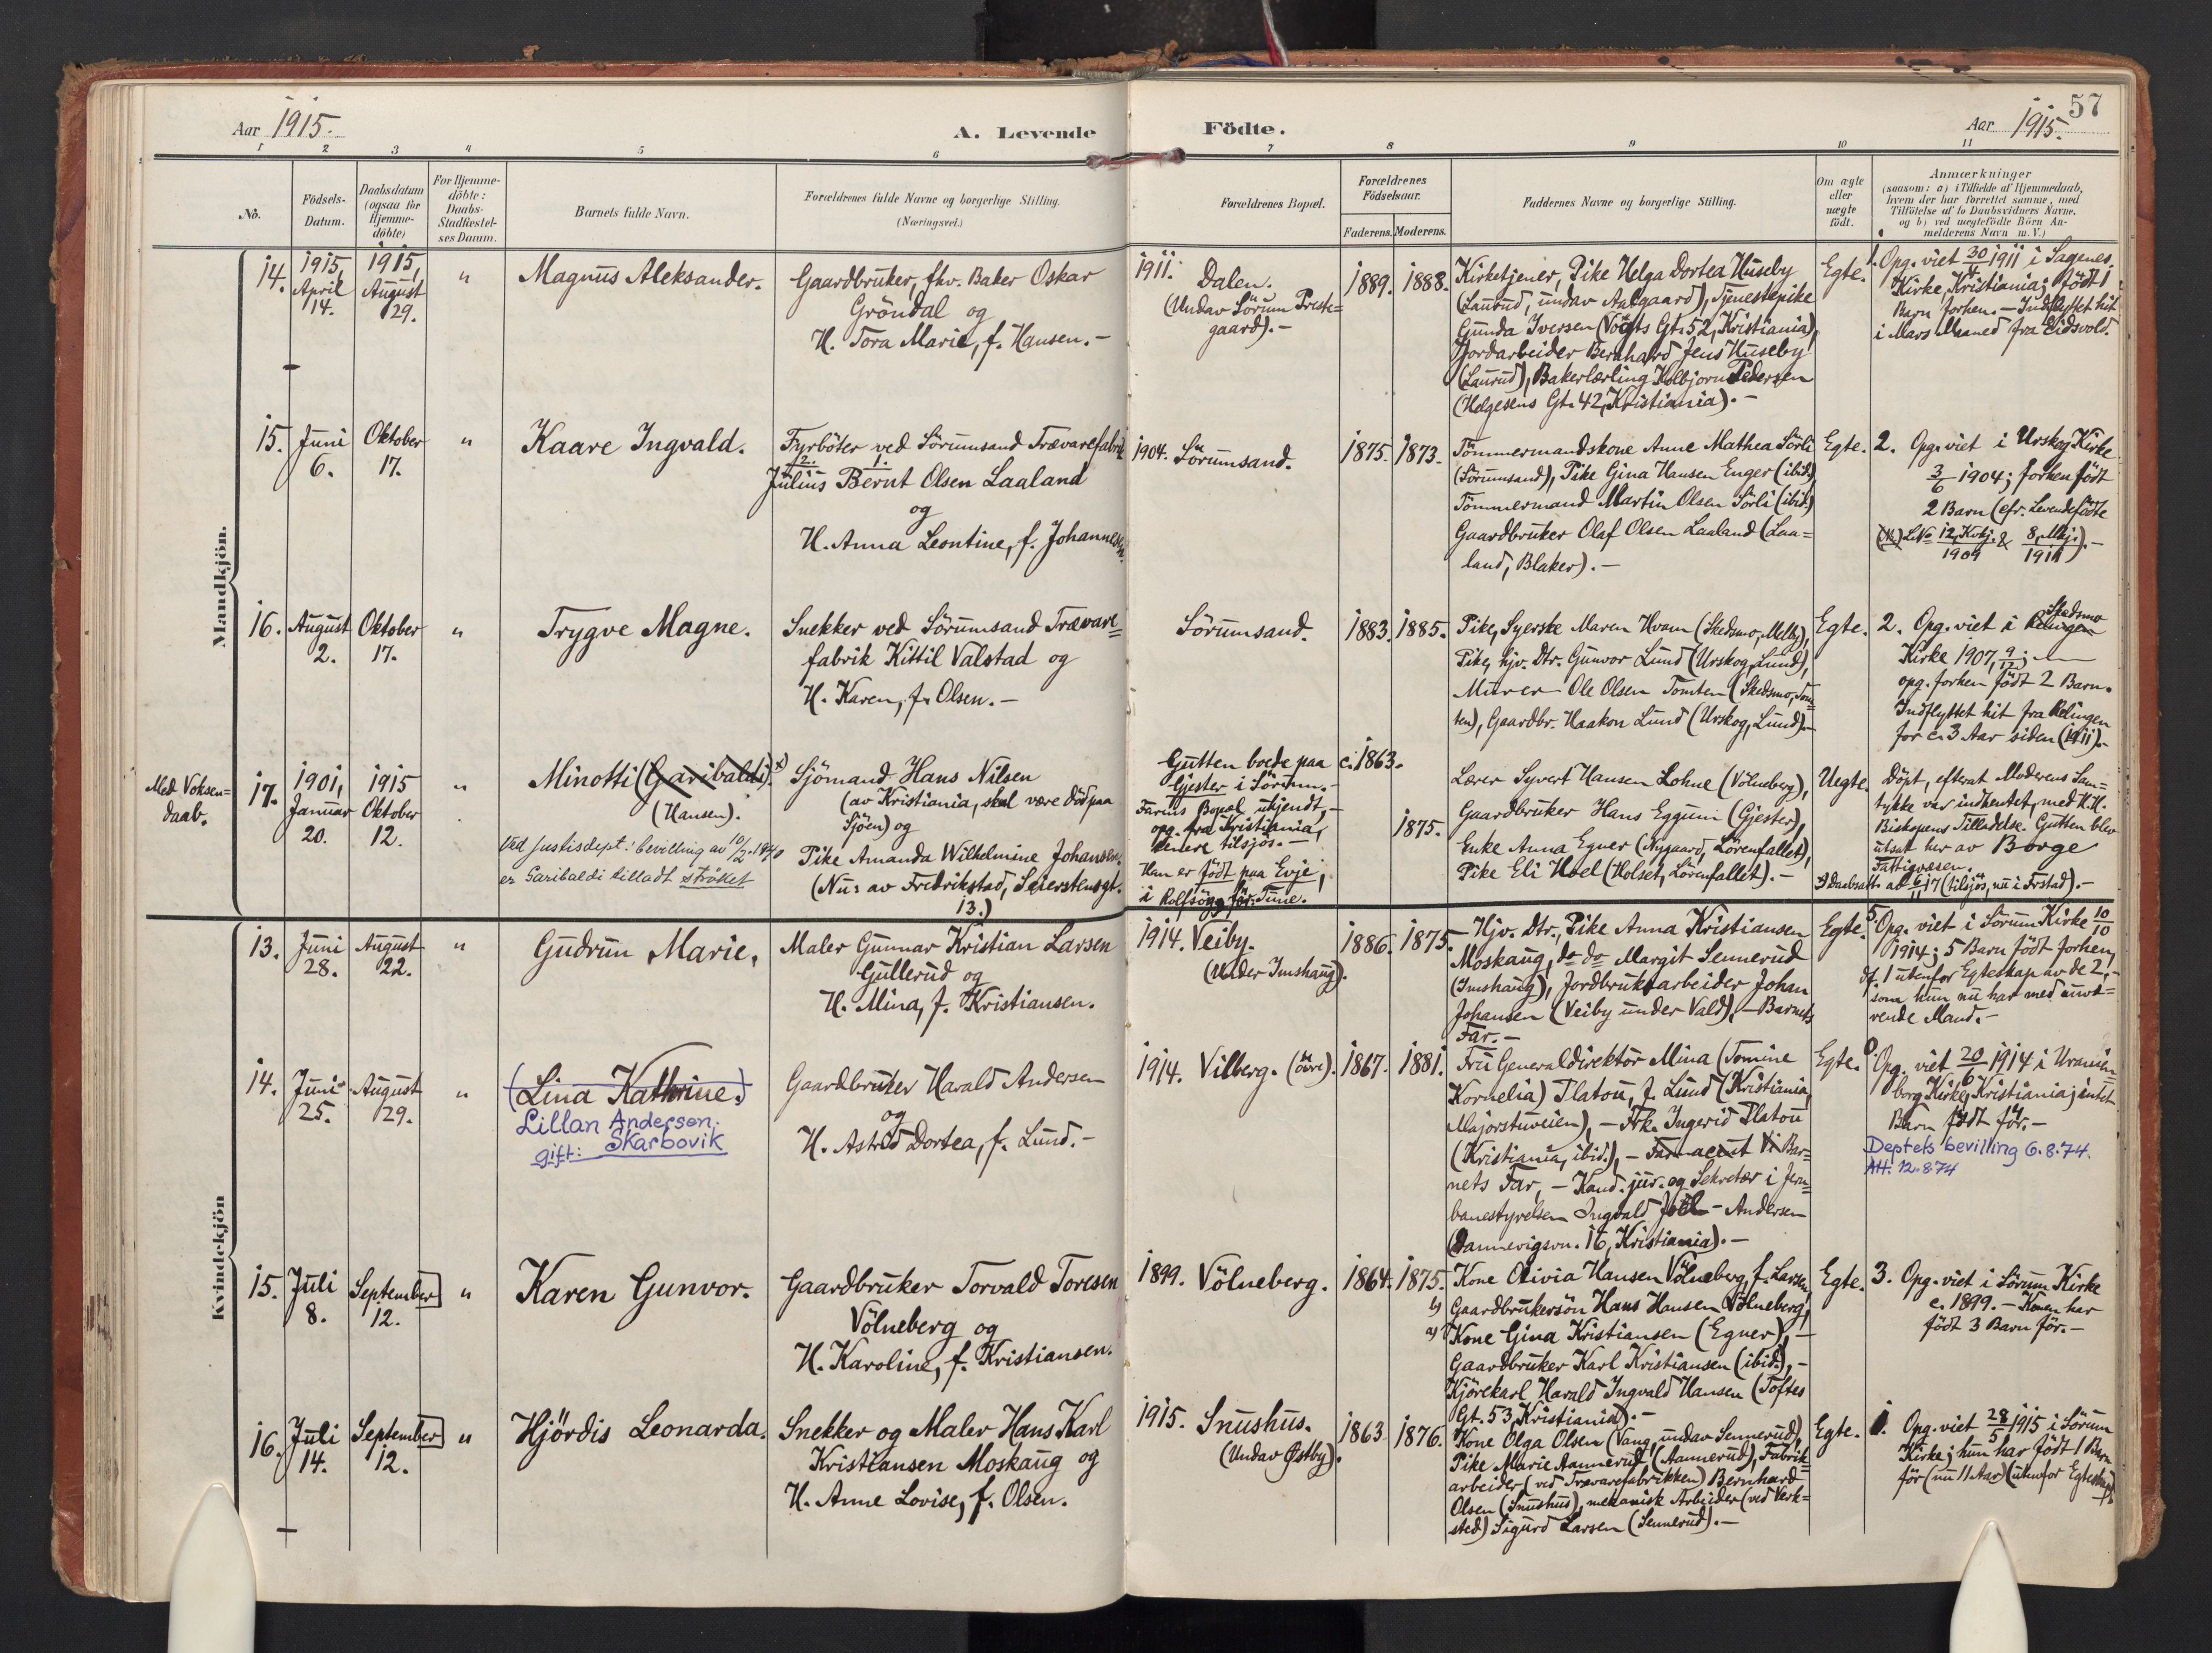 57
Aar 1915.
A. Levende
Födte.
Aar 1915.
1 2 3 4 5 6 7 8 9 10 11
No.
Födsels-
Datum.
Daabsdatum
(ogsaa for
Hjemme-
döbte)
For Hjemme-
döbte:
Daabs-
Stadfæstel-
ses Datum.
Barnets fulde Navn.
Forældrenes fulde Navne og borgerlige Stilling.
(Næringsvei.)
Forældrenes Bopæl.
Forældrenes
Födselsaar.
Faderens. Moderens.
Faddernes Navne og borgerlige Stilling.
Om ægte
eller
uægte
födt.
Anmærkninger
(saasom: a) i Tilfælde af Hjemmedaab,
hvem der har forrettet samme, med
Tilföielse af to Daabsvidners Navne,
og b) ved uægtefödte Börn An-
melderens Navn m. V.)
Mandkjön.
14.
1915,
April
14.
1915,
August
29.
"
Magnus Aleksander.
Gaardbruker, fhv. Baker Oskar
Gröndal og
H. Tora Marie, f. Hansen.-
1911.
Dalen.
(Undav Sörum Preste=
gaard).-
1889.
1888.
Kirketjener, Pike Helga Dortea Huseby
(Laurud, undav Aalgaard), Tjenestepike
Gunda Iversen (Vogts Gt. 52, Kristiania),
Jordarbeider Bernhard Jens Huseby
(Laurud), Bakerlærling Kolbjorn Pedersen
(Helgesens Gt. 42, Kristiania).-
Egte.
1. Opg. viet 30/4 1911 i Sagenes
Kirke, Kristiania; födt 1
Barn forhen.- Indflyttet hit
i Mars Maaned fra Eidsvold.
15.
Juni
6.
Oktober
17.
"
Kaare Ingvald.
Fyrböter ved Sörumsand Trævarefabrik
2. 1.
Julius Bernt Olsen Laaland
og
H. Anna Leontine, f. Johannesen.
1904. Sörumsand.
1875.
1873.
Tömmermandskone Anne Mathea Sörli
(Sörumsand), Pike Gina Hansen Enger (ibid.)
Tömmermand Martin Olsen Sörli (ibid.)
Gaardbruker Olaf Olsen Laaland (Laa=
land, Blaker).-
Egte.
2. Opg. viet i Urskog Kirke
3/6 1904; forhen födt
2 Barn (cfr. Levendefödte
L№ 12, Kvkj. 1909 & 8, Mkj. 1911).-
16.
August
2.
Oktober
17.
"
Trygve Magne.
Snekker ved Sörumsand Trævare=
fabrik Kittil Valstad og
H. Karen, f. Olsen.-
Sörumsand.
1883.
1885.
Pike, Syerske Maren Hvam (Skedsmo, Melby),
Pike, hjv. Dtr. Gunvor Lund (Urskog, Lund),
Murer Ole Olsen Tomten (Skedsmo, Tom=
ten), Gaardbr. Haakon Lund (Urskog, Lund).-
Egte.
2. Opg. viet i Relingen Skedsmo
Kirke 1907, 9/12;
opg. forhen födt 2 Barn.
Indflyttet hit fra Relingen
for c. 3 Aar siden (1911).-
Med Voksen=
daab.
17.
1901,
Januar
20.
1915
Oktober
12.
"
Minotti (Garibaldi).x)
(Hansen).
Ved Justisdept.' bevilling av 10/2. 1940
er Garibaldi tilladt strøket
Sjömand Hans Nilsen
(av Kristiania, skal være död paa
Sjöen) og
Pike Amanda Wilhelmine Johansen.
(Nu: av Fredrikstad, Saierstensgt.
13.)
Gutten boede paa
Gjester i Sörum.-
Farens Bopæl ukjendt,-
opg. fra Kristiania,
senere tilsjös.-
Han er födt paa Evje,
i Rolfsöy, för: Tune.
c. 1863.
1875.
Lærer Syvert Hansen Lohne (Völneberg),
Gaardbruker Hans Eggum (Gjester),
Enke Anna Egner (Nygaard, Lörenfallet),
Pike Eli Hoel (Holset, Lörenfallet).-
Uegte.
Döpt, efterat Moderens Sam=
tykke var indhentet, med H.H.
Biskopens Tilladelse. Gutten blev
utsat her av Borge
Fattigvæsen.
x) Daabsatt. at 6/11 17 (tilsjös, nu i Frstad).-
Kvindekjön
13.
Juni
28.
August
22.
"
Gudrun Marie.
Maler Gunnar Kristian Larsen
Gullerud og
H. Mina, f. Kristiansen.
1914. Veiby.
(Under Imshaug).
1886.
1875.
Hjv. Dtr., Pike Anna Kristiansen
Moskaug, do do Margit Sennerud
(Imshaug), Jordbruksarbeider Johan
Johansen (Veiby under Vald),- Barnets
Far.-
Egte.
5. Opg. viet i Sörum Kirke 10/10
1914; 5 Barn födt forhen,
df. 1 utenfor Egteskap av de 2,-
som hun nu har med nuvæ=
rende Mand.-
14.
Juni
25.
August
29.
"
(Lina Kathrine.)
Lillan Andersen.
gift: Skarbovik
Gaardbruker Harald Andersen
og
H. Astrid Dortea, f. Lund.-
1914. Vilberg. (övre).
1867.
1881.
Fru Generaldirektör Mina (Tomine
Kornelia) Platou, f. Lund (Kristiania,
Majorstuveien),- Frk. Ingerid Platou
(Kristiania, ibid.),- Bar=
nets Far,- Kand. jur. og Sekretær i Jern=
banestyrelsen Ingvald Joël-Andersen
(Dannevigsvn. 16, Kristiania).-
Egte.
0. Opg. viet 20/6 1914 i Uranien=
borg Kirke, Kristiania; intet
Barn födt för.-
Deptets bevilling 6.8.74.
Att: 12.8.74
15.
Juli
8.
September
12.
"
Karen Gunvor.
Gaardbruker Torvald Toresen
Völneberg og
H. Karoline, f. Kristiansen.
1899. Völneberg.
1864.
1875.
Kone Olivia Hansen Völneberg, f. Larsen,
b) Gaardbrukersön Hans Hansen Völneberg,
a) Kone Gina Kristiansen (Egner),-
Gaardbruker Karl Kristiansen (ibid.),-
Kjörekarl Harald Ingvald Hansen (Toftes
Gt. 53, Kristiania).-
Egte.
3. Opg. viet i Sörum Kirke
c. 1899.- Konen har
födt 3 Barn för.-
16.
Juli
14.
September
12.
"
Hjördis Leonarda.
Snekker og Maler Hans Karl
Kristiansen Moskaug og
H. Anne Lovise, f. Olsen.
1915. Snushus.
(Undav Østby).
1863
1876.
Kone Olga Olsen (Vang undav Sennerud),
Pike Marie Aannerud (Aannerud), Fabrik=
arbeider (ved Trævarefabrikken) Bernhard
Olsen (Snushus), mekanisk Arbeider (ved Verk=
sted) Sigurd Larsen (Sennerud).-
Egte.
1. Opg. viet 28/5 1915 i Sörum
Kirke; hun har födt 1 Barn
för (nu 11 Aar) (utenfor Egteskap).